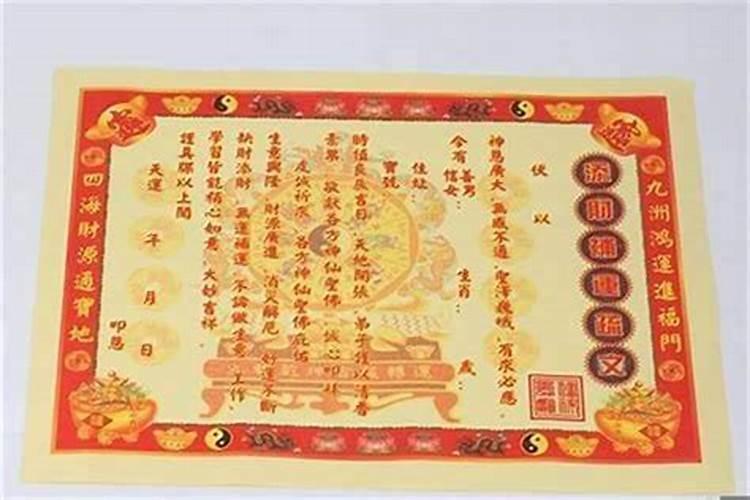 九洲鴻運進福門
添財補運疏文
伏以
神恩廣大 無感不通 聖澤巍峨 有求必應
今有善男信女: 生肖: 歲:
住址:
寶號
時值良辰吉日 天地開張 弟子 以清香
素果 敬献各方神仙聖佛 誠心叩拜
虔誠祈求 各方神仙聖佛庇佑
生意興隆 財源廣進 消災解厄 好運不斷
缺財添財 無運補運 不論做生意 工作、
學習皆能稱心如意 大妙吉祥。
謹具牒以上聞
天運 年 月 日 叩恩
四海財源通寶地